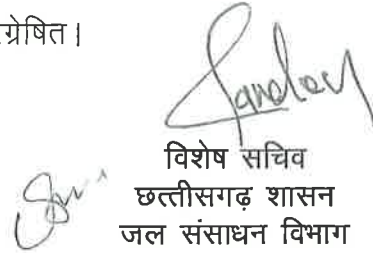 ग्रेषित।
विशेष सचिव
छत्तीसगढ़ शासन
जल संसाधन विभाग